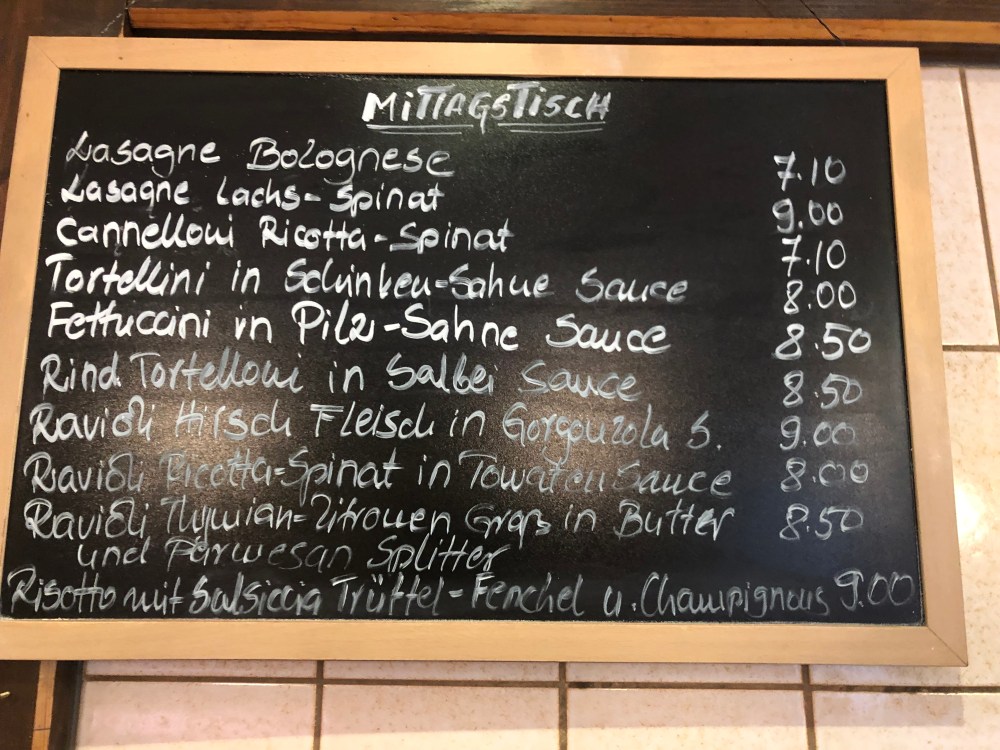 MITTAGSTISCH
Lasagne Bolognese 7.10
Lasagne Lachs-Spinat 9.00
Cannelloni Ricotta-Spinat 7.10
Tortellini in Schinken-Sahne Sauce 8.00
Fettuccini in Pilz-Sahne Sauce 8.50
Rind Tortelloni in Salbei Sauce 8.50
Ravioli Hirsch Fleisch in Gorgonzola S. 9.00
Ravioli Ricotta-Spinat in Tomaten Sauce 8.00
Ravioli Thymian-Zitronen Groß in Butter 8.50
und Parmesan Splitter
Risotto mit Salsiccia Trüffel-Fenchel u. Champignons 9.00